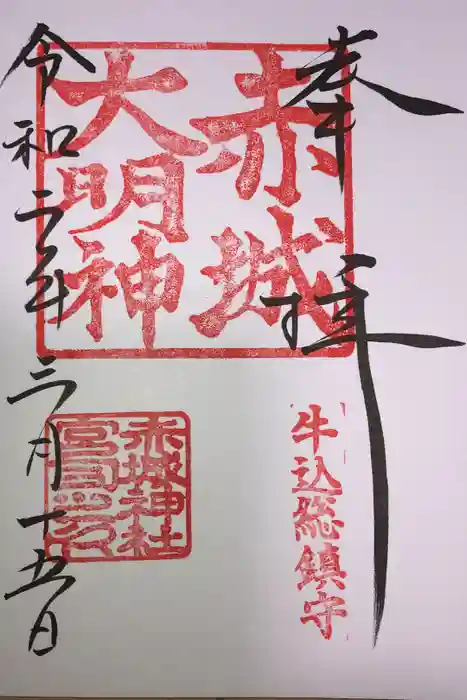 奉拝
赤城
大明神
牛込総鎮守
赤城神社
宮司之印
令和二年三月十五日